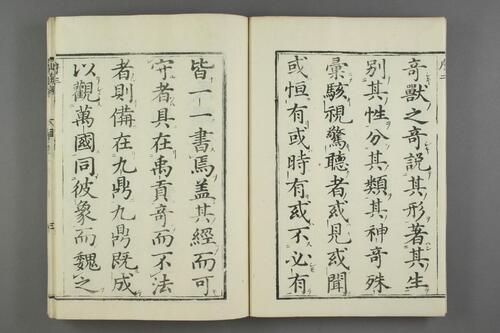 奇獸之奇說其形著其生
別其性分其類其神奇殊
彙駭視驚聽者或見或聞
或恒有或時有或不必有
皆一一書焉蓋其經而可
守者具在禹貢奇而不法
者則備在九鼎九鼎既成
以觀萬國同彼象而魏之